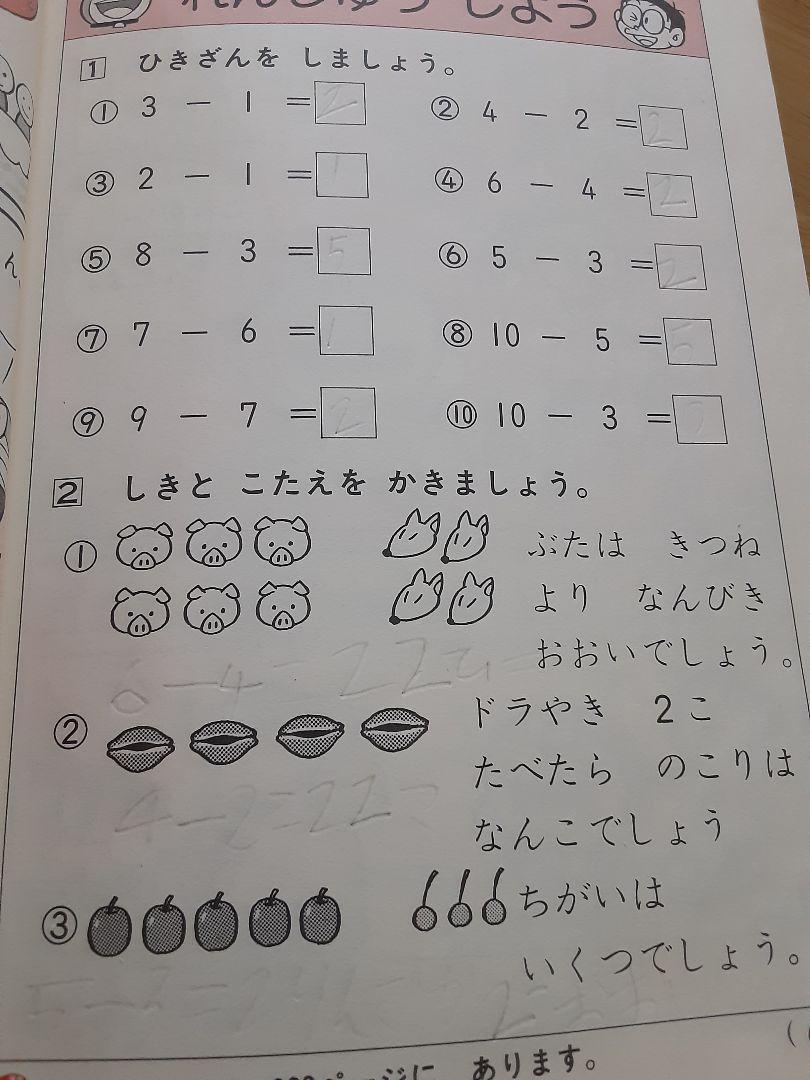 れんしゅう しよう
1 ひきざんを しましょう。
① 3 − 1 = 2 ② 4 − 2 = 2
③ 2 − 1 = 1 ④ 6 − 4 = 2
⑤ 8 − 3 = 5 ⑥ 5 − 3 = 2
⑦ 7 − 6 = 1 ⑧ 10 − 5 = 5
⑨ 9 − 7 = 2 ⑩ 10 − 3 =
2 しきと こたえを かきましょう。
① ぶたは きつね
より なんびき
おおいでしょう。
6 − 4 = 2
② ドラやき 2こ
たべたら のこりは
なんこでしょう
4 − 2 = 2 2こ
③ ちがいは
いくつでしょう。
ページに あります。